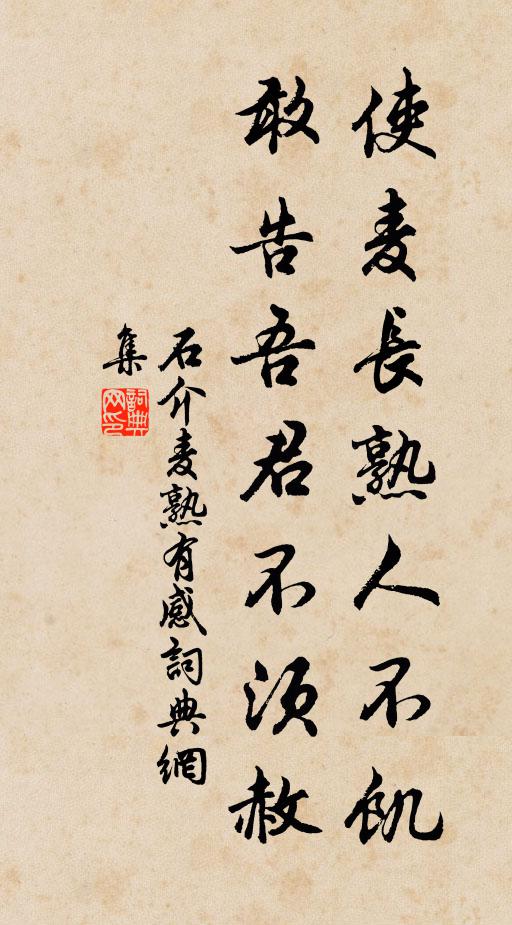 使麦長熟人不飢
敢告吾君不須赦
石介麦熟有感詞典網
集
詞典网印